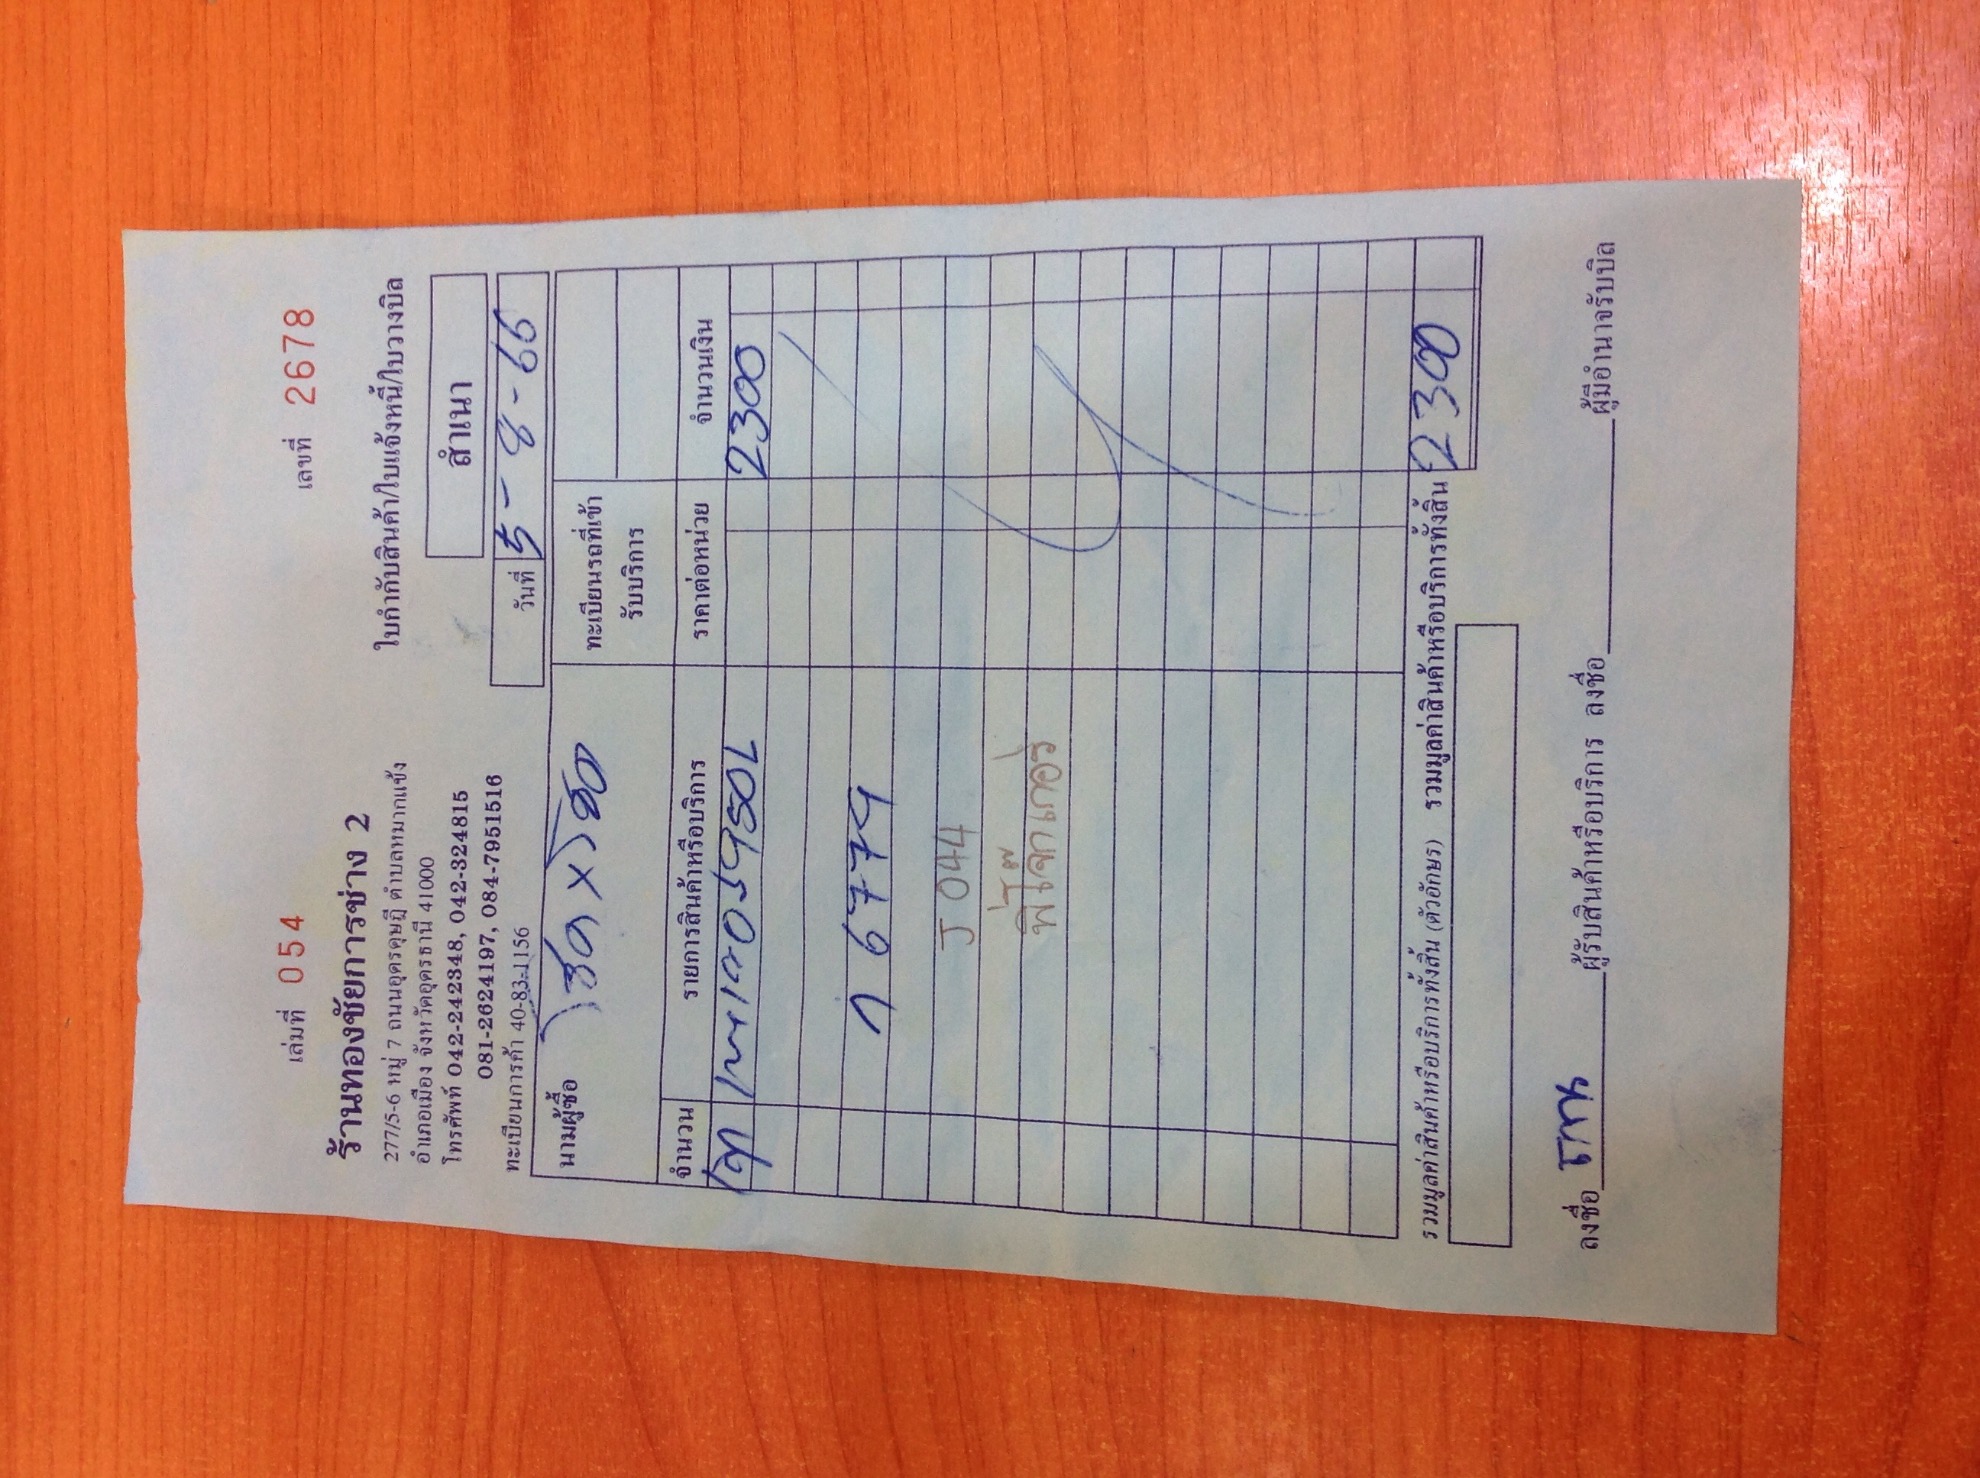 เล่มที่ 054 เลขที่ 2678
ร้านทองชัยการช่าง 2
277/5-6 หมู่ 7 ถนนอุดรดุษฎี ตำบลหมากแข้ง
อำเภอเมือง จังหวัดอุดรธานี 41000
โทรศัพท์ 042-242348, 042-324815
081-2624197, 084-7951516
ทะเบียนการค้า 40-83-1156
ใบกำกับสินค้า/ใบแจ้งหนี้/ใบวางบิล
สำเนา
วันที่ 5-8-66
นามผู้ซื้อ
ทะเบียนรถที่เข้า
รับบริการ
จำนวน รายการสินค้าหรือบริการ ราคาต่อหน่วย จำนวนเงิน
2300
6774
J 044
รวมมูลค่าสินค้าหรือบริการทั้งสิ้น (ตัวอักษร) รวมมูลค่าสินค้าหรือบริการทั้งสิ้น 2300
ลงชื่อ ผู้รับสินค้าหรือบริการ ลงชื่อ ผู้มีอำนาจรับบิล